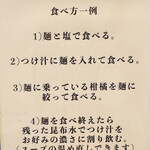 食べ方一例
1)麺と塩で食べる。
2)つけ汁に麺を入れて食べる。
3)麺に乗っている柑橘を麺に
絞って食べる。
4)麺を食べ終えたら
残った昆布水でつけ汁を
お好みの濃さに割り飲む。
(スープの温め直しできます)